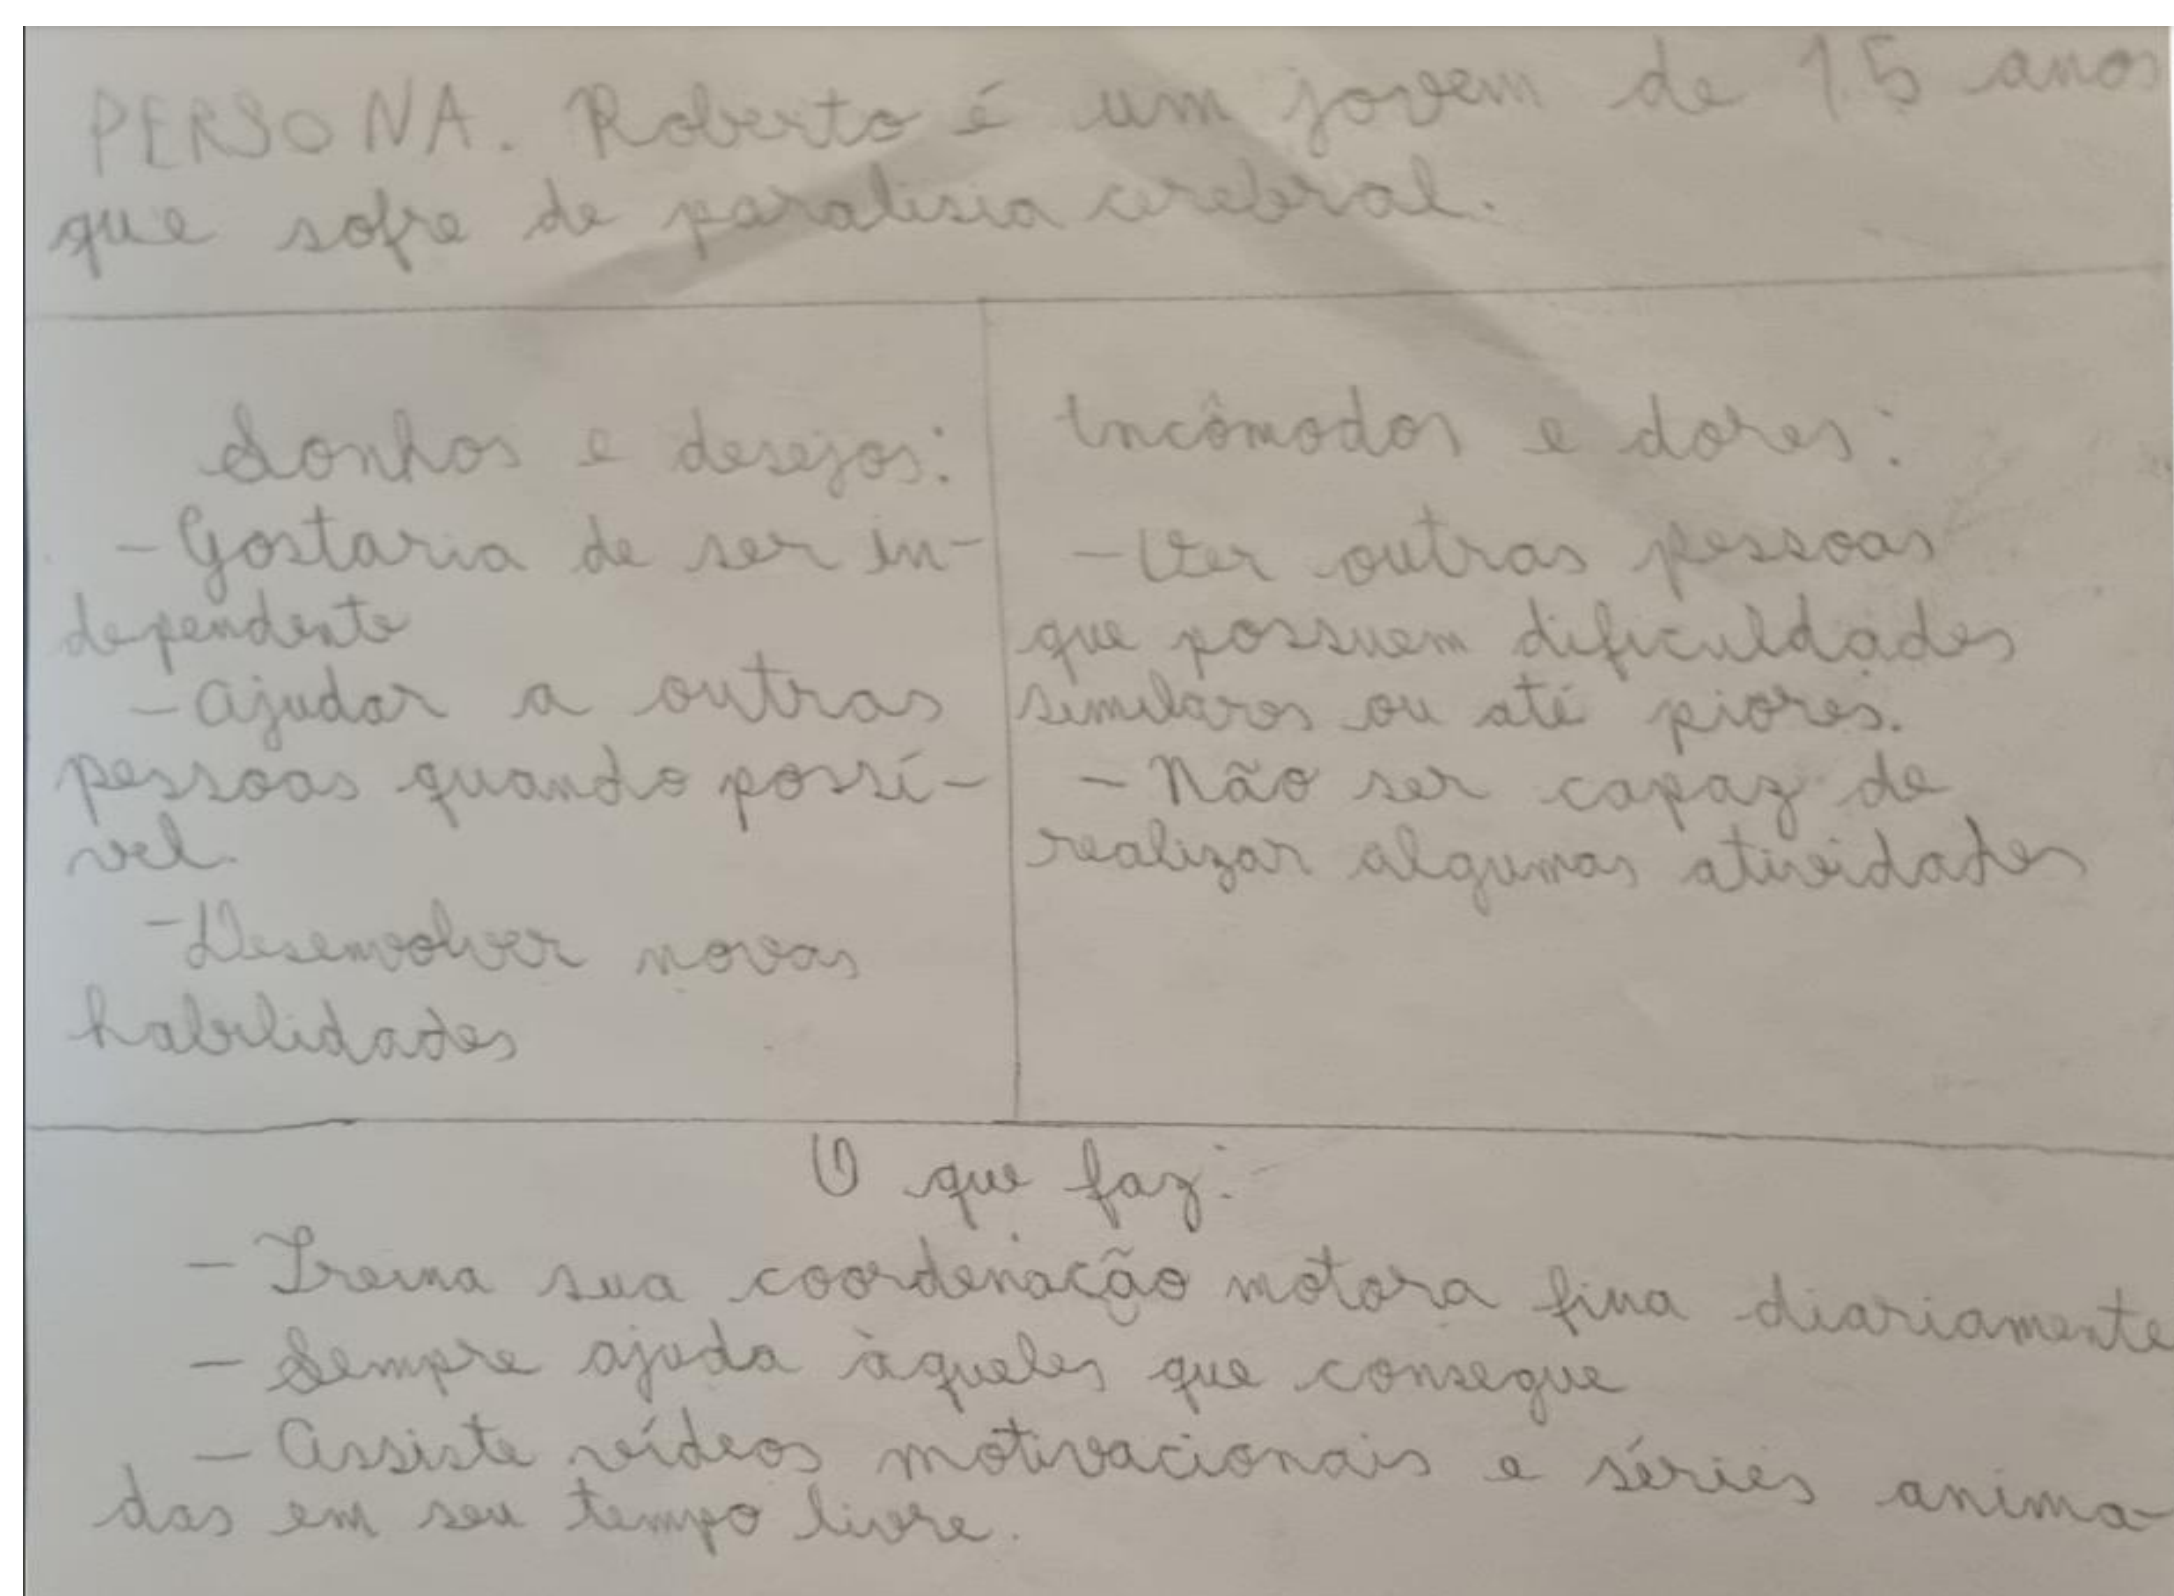 PERSONA. Roberto é um jovem de 15 anos
que sofre de paralisia cerebral.
Sonhos e desejos:
- Gostaria de ser in-
dependente
- Ajudar a outras
pessoas quando possí-
vel.
- Desenvolver novas
habilidades
Incômodos e dores:
- Ver outras pessoas
que possuem dificuldades
similares ou até piores.
- Não ser capaz de
realizar algumas atividades
O que faz:
- Treina sua coordenação motora fina diariamente
- Sempre ajuda àqueles que consegue
- Assiste vídeos motivacionais e séries anima-
das em seu tempo livre.